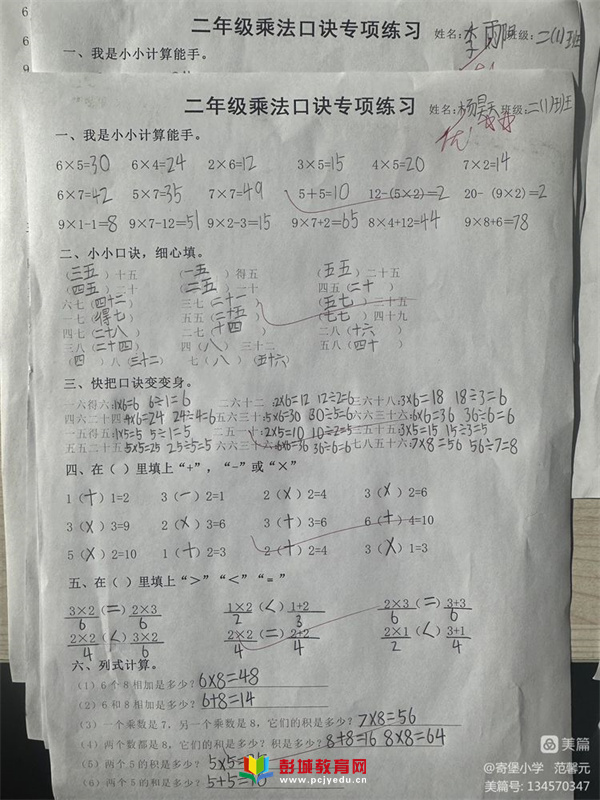 二年级乘法口诀专项练习 姓名: 李雨 班级:二(1)班
一、我是小小计算能手。
二年级乘法口诀专项练习 姓名:杨昊天 班级:二(1)班
优!
一、我是小小计算能手。
6×5=30 6×4=24 2×6=12 3×5=15 4×5=20 7×2=14
6×7=42 5×7=35 7×7=49 5+5=10 12-(5×2)=2 20-(9×2)=2
9×1-1=8 9×7-12=51 9×2-3=15 9×7+2=65 8×4+12=44 9×8+6=78
二、小小口诀,细心填。
(三五)十五 (一五)得五 (五五)二十五
(四五)二十 (二五)一十 四五(二十)
六七(四十二) 三七(二十一) (五七)三十五
一七(得七) 五五(二十五) (七七)四十九
四七(二十八) 二七(十四) 二八(十六)
三八(二十四) 四(八)三十二 五八(四十)
(四)八(三十二) 七(八)(五十六)
三、快把口诀变变身。
一六得六:1×6=6 6÷1=6 二六十二:2×6=12 12÷2=6 三六十八:3×6=18 18÷3=6
四六二十四:4×6=24 24÷4=6 五六三十:5×6=30 30÷5=6 六六三十六:6×6=36 36÷6=6
一五得五:1×5=5 5÷1=5 二五一十:2×5=10 10÷2=5 三五十五:3×5=15 15÷3=5
五五二十五:5×5=25 25÷5=5 六六三十六:6×6=36 36÷6=6 七八五十六:7×8=56 56÷7=8
四、在( )里填上“+”,“-”或“×”
1(+)1=2 3(-)2=1 2(×)2=4 3(×)2=6
3(×)3=9 2(×)3=6 3(+)3=6 6(+)4=10
5(×)2=10 1(+)2=3 2(+)2=4 3(×)1=3
五、在( )里填上“>”“<”“=”
3×2(=)2×3 1×2(<)1+2 2×3(=)3+3
6 6 2 3 6 6
2×2(<)3×2 2×2(=)2+2 2×1(<)3+1
4 6 4 4 2 4
六、列式计算。
(1)6个8相加是多少?6×8=48
(2)6和8相加是多少?6+8=14
(3)一个乘数是7,另一个乘数是8,它们的积是多少?7×8=56
(4)两个数都是8,它们的和是多少?积是多少?8+8=16 8×8=64
(5)两个5的积是多少?5×5=
(6)两个5的和是多少?5+5=10
彭城教育网
www.pcjyedu.cn
美篇
@寄堡小学 范馨元
美篇号:134570347